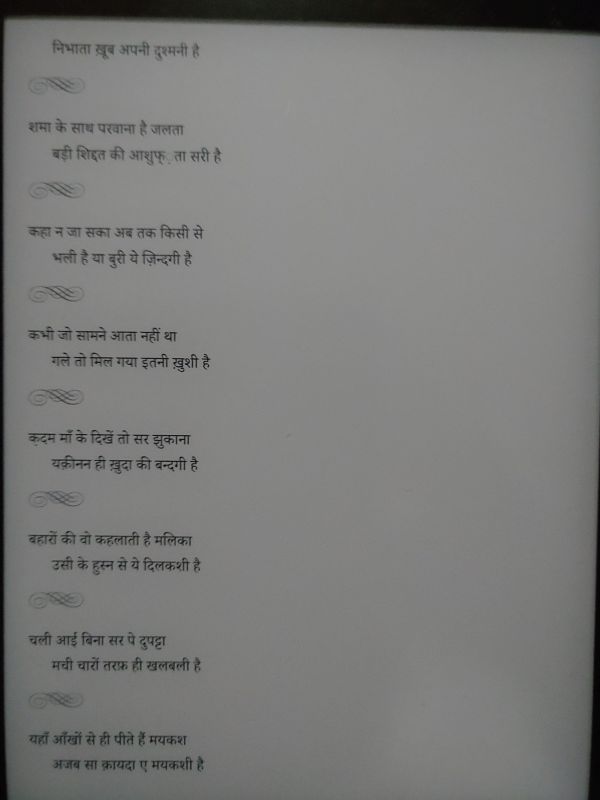 निभाता ख़ूब अपनी दुश्मनी है
शमा के साथ परवाना है जलता
बड़ी शिद्दत की आशुफ़्ता सरी है
कहा न जा सका अब तक किसी से
भली है या बुरी ये ज़िन्दगी है
कभी जो सामने आता नहीं था
गले तो मिल गया इतनी ख़ुशी है
क़दम माँ के दिखें तो सर झुकाना
यक़ीनन ही ख़ुदा की बन्दगी है
बहारों की वो कहलाती है मलिका
उसी के हुस्न से ये दिलकशी है
चली आई बिना सर पे दुपट्टा
मची चारों तरफ़ ही खलबली है
यहाँ आँखों से ही पीते हैं मयकश
अजब सा क़ायदा ए मयकशी है